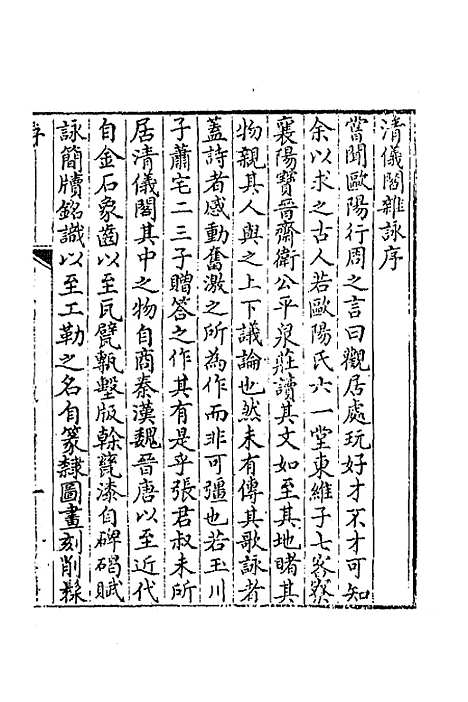 清儀閣雜詠序
嘗聞歐陽行周之言曰觀居處玩好才不才可知
余以求之古人若歐陽氏六一堂東維子七客寮
襄陽寶晉齋衛公平泉莊讀其文如至其地睹其
物親其人與之上下議論也然未有傳其歌詠者
蓋詩者感動奮激之所為作而非可彊也若玉川
子蕭宅二三子贈答之作其有是乎張君叔未所
居清儀閣其中之物自商秦漢魏晉唐以至近代
自金石象齒以至瓦甓甎墼版榦甆漆自碑碣賦
詠簡牘銘識以至工勒之名自篆隸圖畫刻削髹